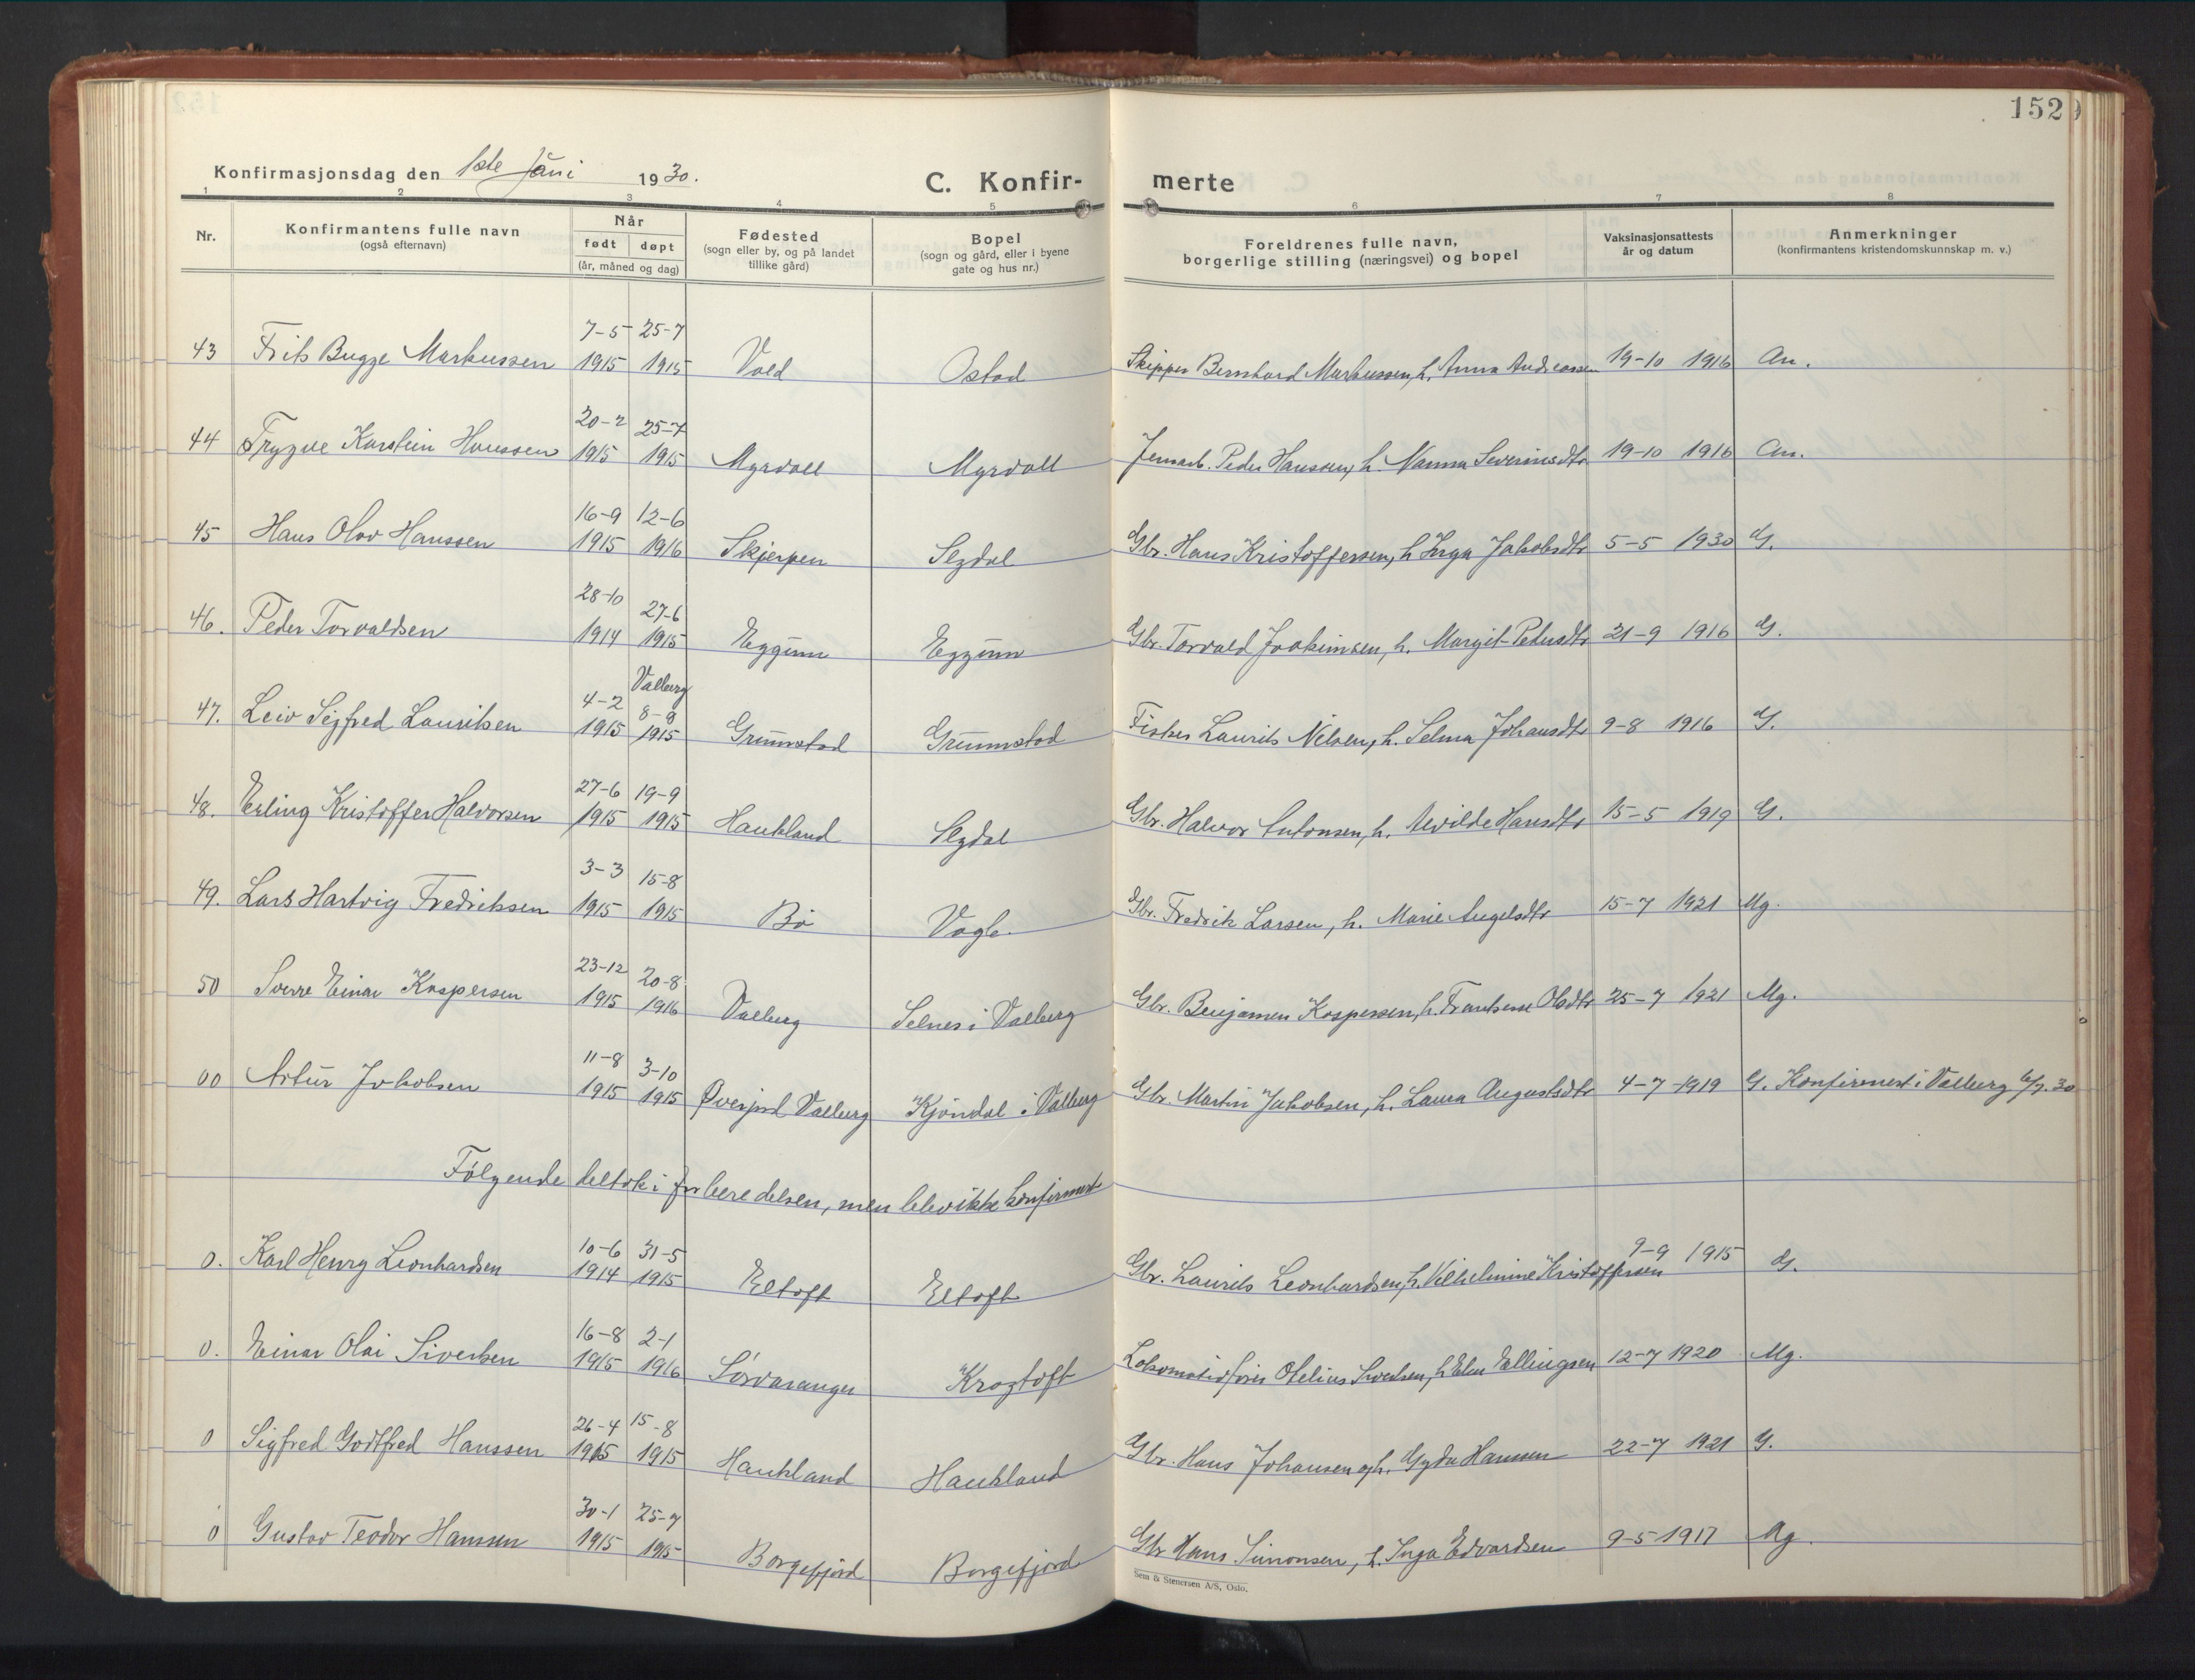 152
Konfirmasjonsdag den 1ste Juni 1930.
C. Konfir-
merte
1 2 3 4 5 6 7 8
Nr.
Konfirmantens fulle navn
(også efternavn)
Når
født døpt
(år, måned og dag)
Fødested
(sogn eller by, og på landet
tillike gård)
Bopel
(sogn og gård, eller i byene
gate og hus nr.)
Foreldrenes fulle navn,
borgerlige stilling (næringsvei) og bopel
Vaksinasjonsattests
år og datum
Anmerkninger
(konfirmantens kristendomskunnskap m. v.)
7-5 25-7
43 Frits Bugge Markussen 1915 1915 Vold Ostad Skipper Bernhard Markussen, h. Anna Andreassen 19-10 1916 An.
20-2 25-7
44 Trygve Karstein Hanssen 1915 1915 Myrvoll Myrvoll Jernarb. Peder Hanssen, h. Nanna Severinsdtr 19-10 1916 An.
16-9 12-6
45 Hans Olav Hanssen 1915 1916 Skjerpen Segdal Gbr. Hans Kristoffersen, h. Inga Jakobsdtr 5-5 1930 G.
28-10 27-6
46. Peder Torvaldsen 1914 1915 Eggum Eggum Gbr. Torvald Joakimsen, h. Margit Pedersdtr 21-9 1916 G.
Valberg
4-2 8-8
47. Leiv Sigfred Lauritsen 1915 1915 Grunnstad Grunnstad Fisker Laurits Nilsen, h. Selma Johansdtr 9-8 1916 G.
27-6 19-9
48. Erling Kristoffer Halvorsen 1915 1915 Haukland Segdal Gbr. Halvor Antonsen, h. Alvilde Hansdtr 15-5 1919 G.
3-3 15-8
49. Lars Hartvig Fredriksen 1915 1915 Bø Vagle Gbr. Fredrik Larsen, h. Marie Angelsdtr 15-7 1921 Mg.
23-12 20-8
50 Sverre Einar Kaspersen 1915 1916 Valberg Selnes i Valberg Gbr. Benjamen Kaspersen, h. Frantsene Olsdtr 25-7 1921 Mg.
11-8 3-10
00 Artur Jakobsen 1915 1915 Valberg Kjøndal i Valberg Gbr. Martin Jakobsen, h. Laura Augustsdtr 4-7-1919 G. Konfirmert i Valberg 6/7.30
Følgende deltok i forberedelsen, men blev ikke konfirmert
10-6 31-5
0. Karl Henry Leonhardsen 1914 1915 Eltoft Eltoft Gbr. Laurits Leonhardsen, h. Vilhelmine Kristoffersen 9-9 1915 G.
16-8 2-1
0. Einar Olai Sivertsen 1915 1916 Sørvaranger Krogtoft Lokomotivfører Otelius Sivertsen, h. Ellingsen 12-7 1920 Mg.
26-4 15-8
0 Sigfred Godtfred Hanssen 1915 1915 Haukland Haukland Gbr. Hans Johansen og h. Gyda Hansen 22-7 1921 G.
30-1 25-7
0 Gustav Teodor Hanssen 1915 1915 Borgefjord Borgefjord Gbr Hans Simonsen, h. Inga Edvardsen 9-5 1917 Mg.
Sem & Stenersen A/S, Oslo.